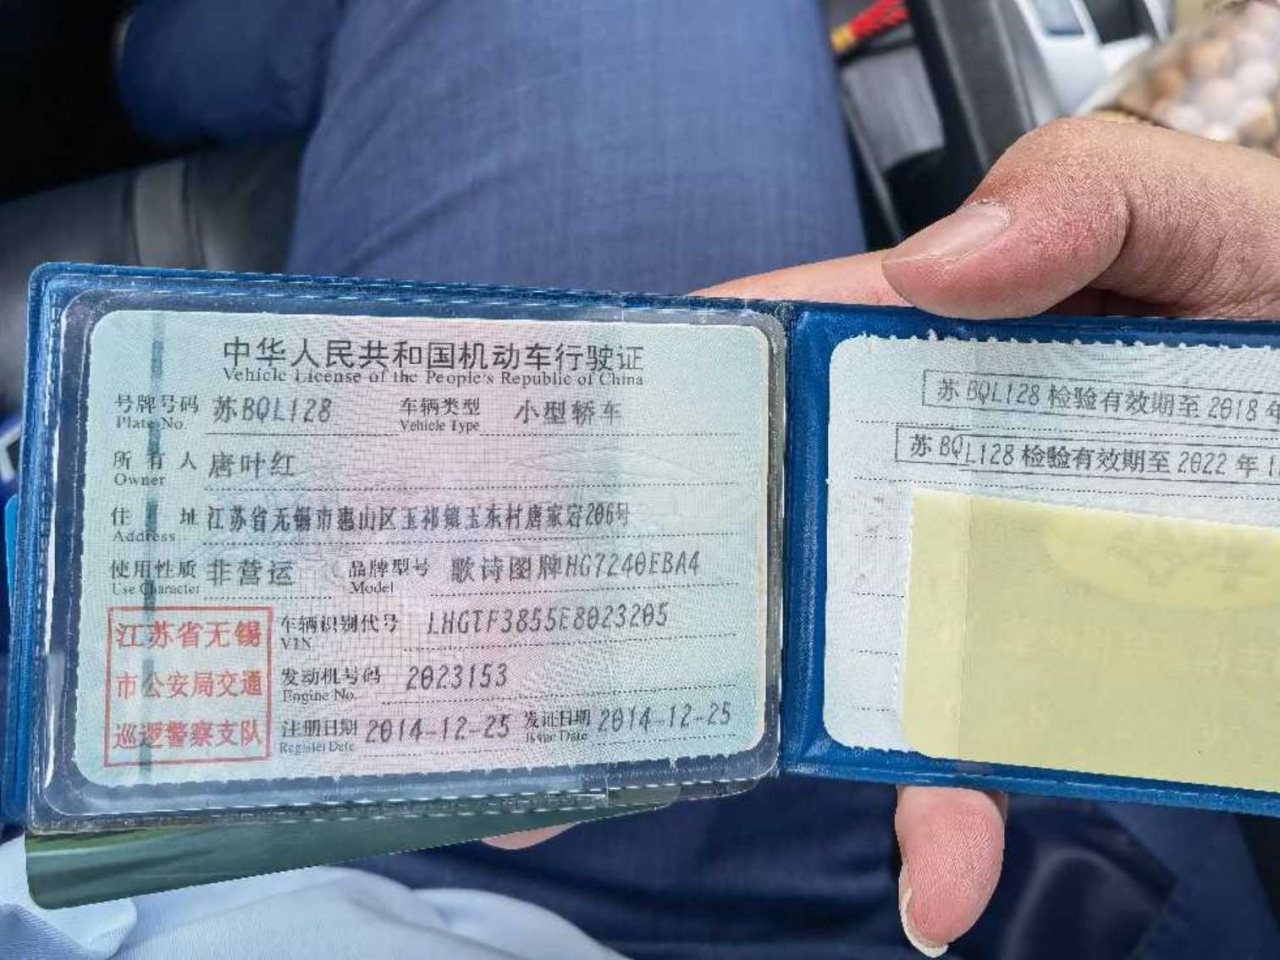 中华人民共和国机动车行驶证
Vehicle License of the People's Republic of China
号牌号码 苏BQL128 车辆类型 小型轿车
Plate No. Vehicle Type
所有人 唐叶红
Owner
住址 江苏省无锡市惠山区玉祁镇玉东村唐家宕206号
Address
使用性质 非营运 品牌型号 歌诗图牌HG7240EBA4
Use Character Model
江苏省无锡
市公安局交通
巡逻警察支队
车辆识别代号 LHGTF3855E8023205
VIN
发动机号码 2023153
Engine No.
注册日期 2014-12-25 发证日期 2014-12-25
Register Date Issue Date
苏BQL128检验有效期至2018年
苏BQL128检验有效期至2022年1